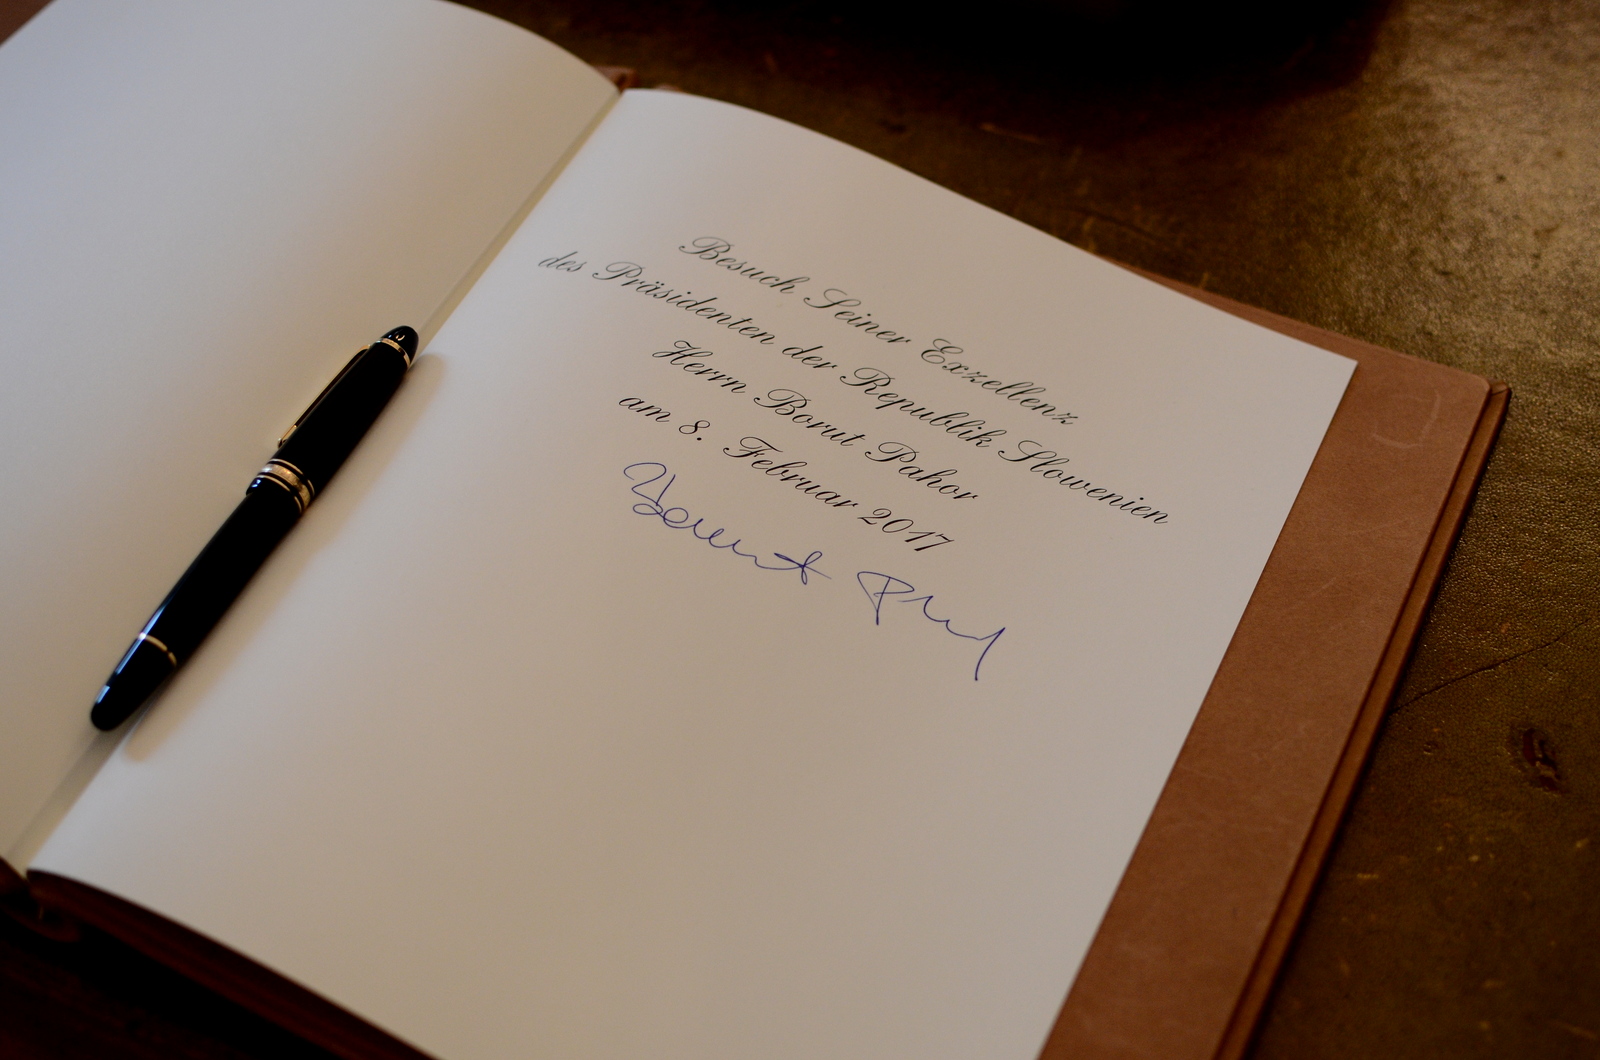 Besuch Seiner Exzellenz
des Präsidenten der Republik Slowenien
Herrn Borut Pahor
am 8. Februar 2017
Borut Pahor